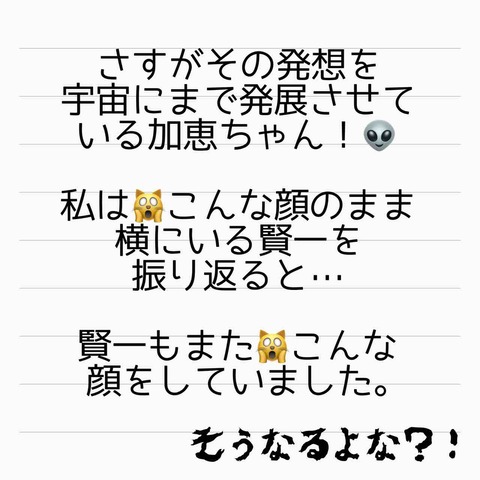 さすがその発想を
宇宙にまで発展させて
いる加恵ちゃん！👽
私は🙀こんな顔のまま
横にいる賢一を
振り返ると…
賢一もまた🙀こんな
顔をしていました。
そうなるよな？！